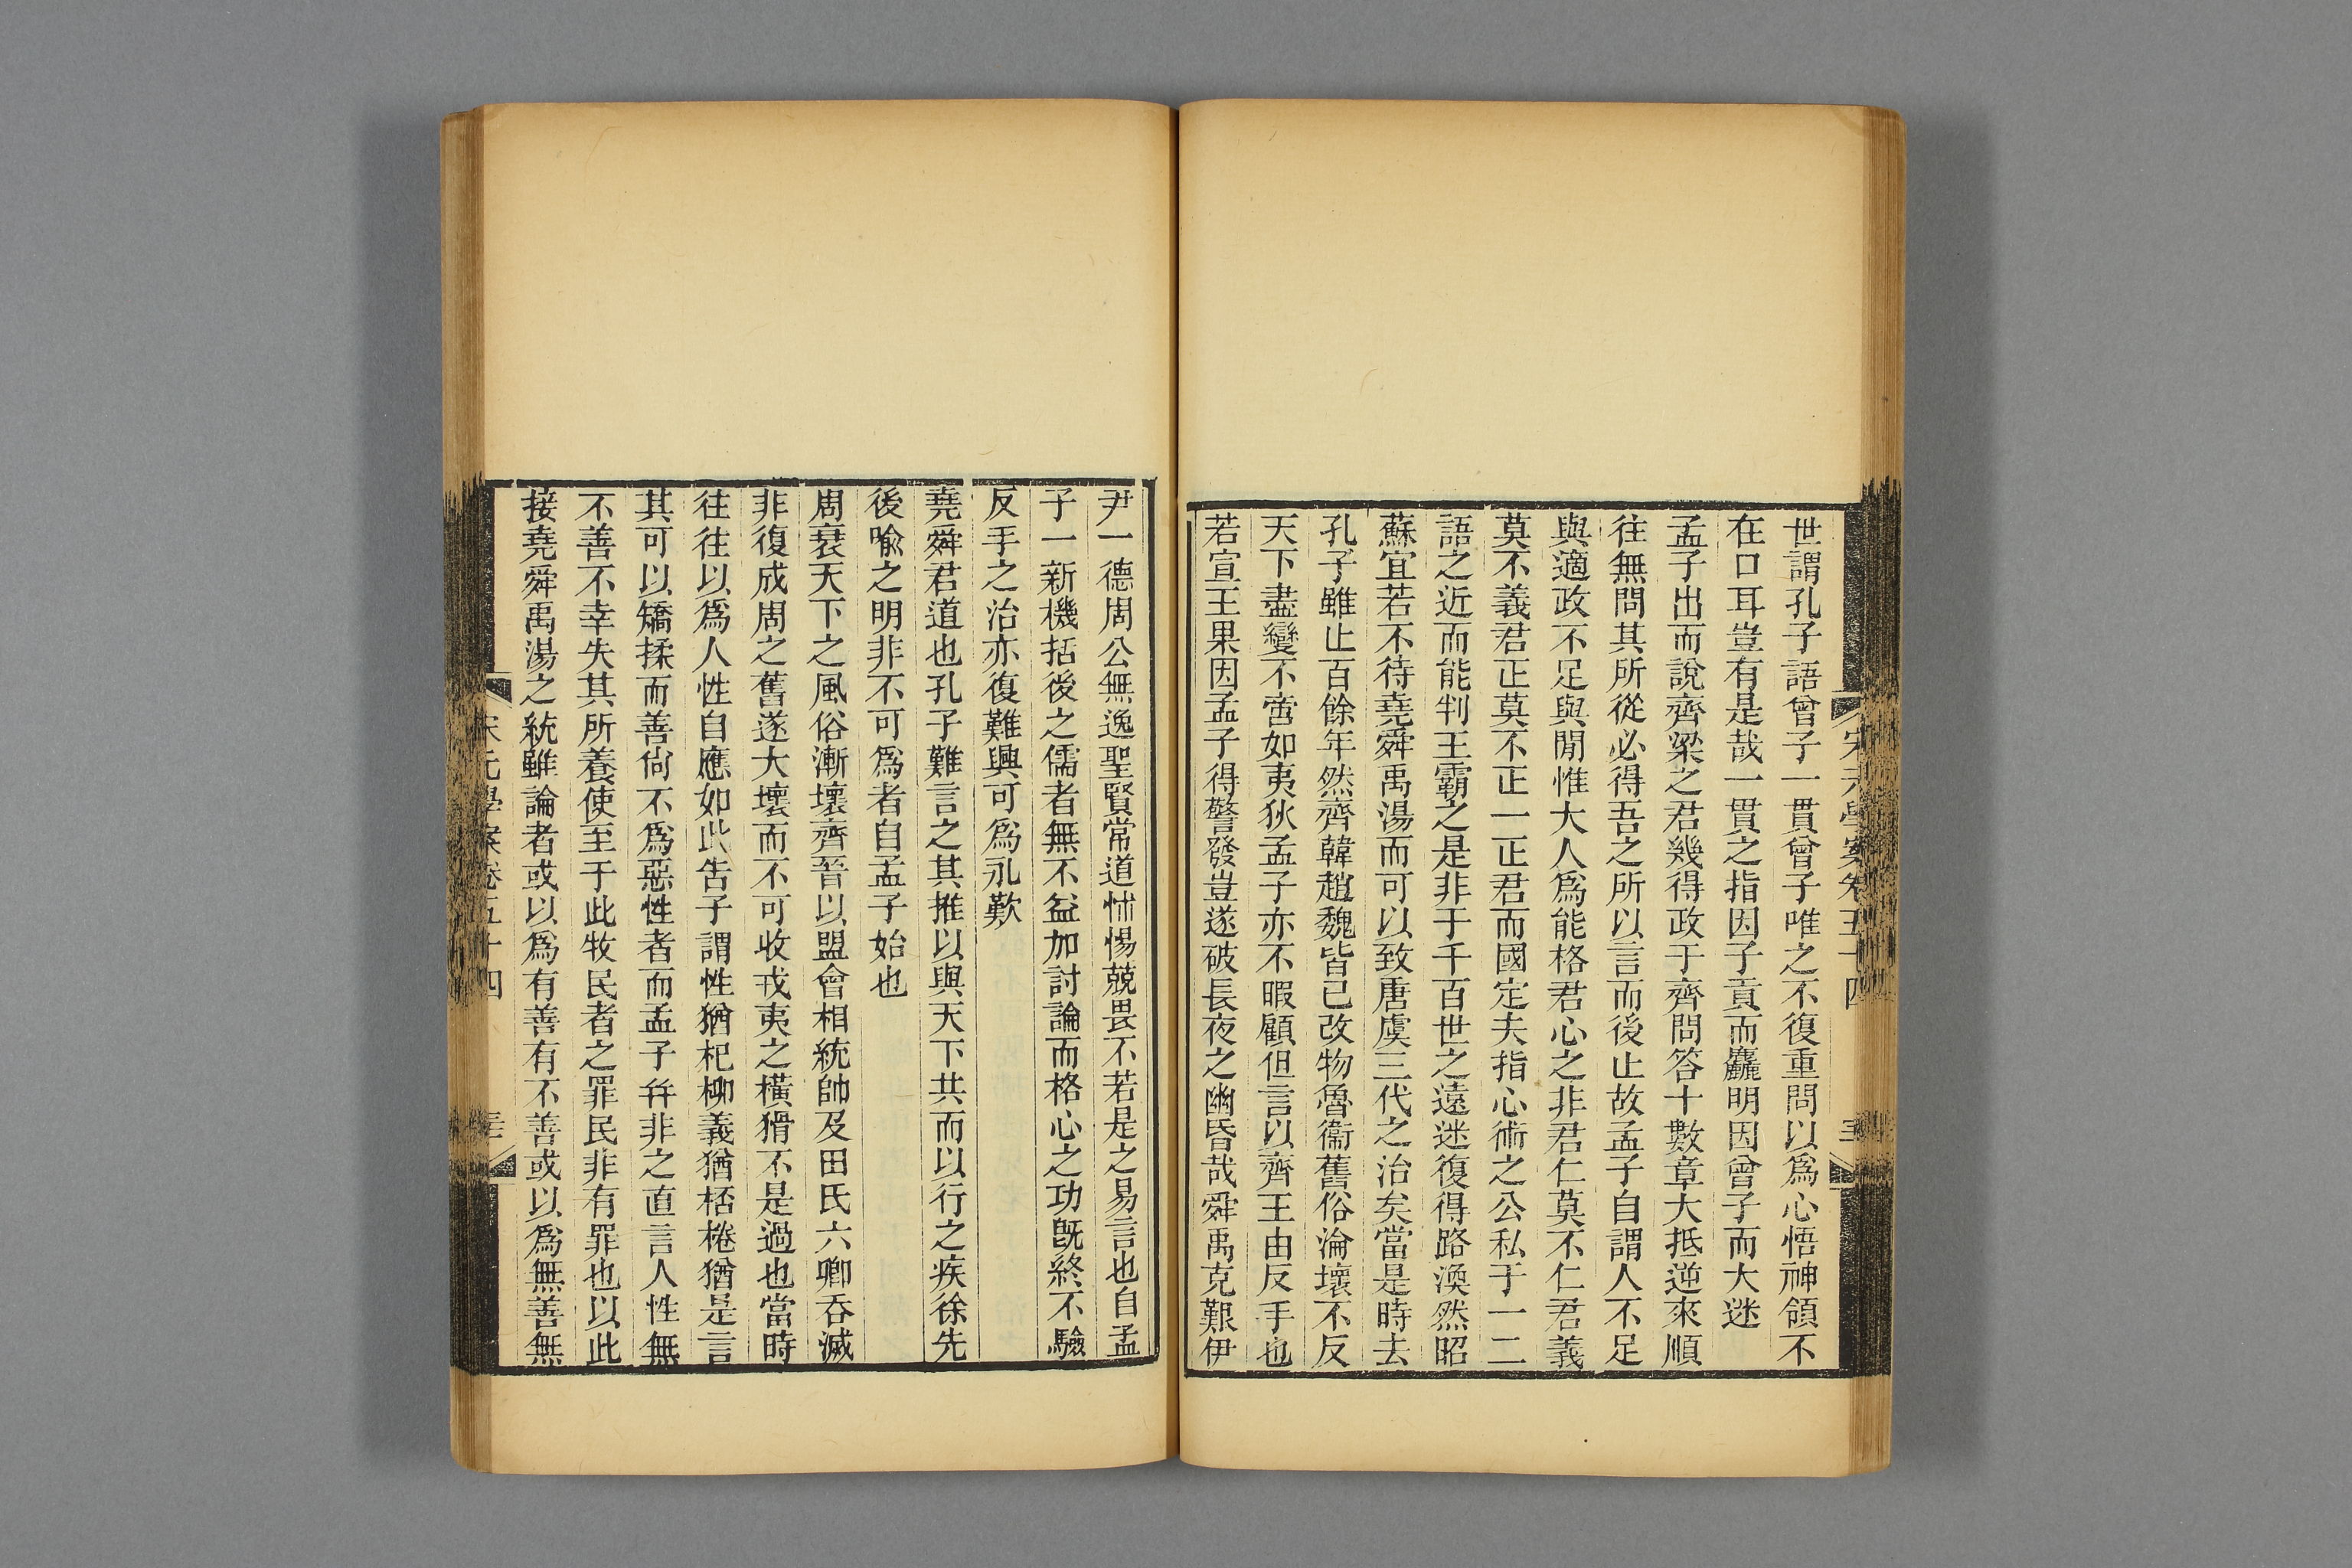 世謂孔子語曾子一貫曾子唯之不復重問以爲心悟神領不
在口耳豈有是哉一貫之指因子貢而麤明因曾子而大迷
孟子出而說齊梁之君幾得政于齊問答十數章大抵逆來順
往無問其所從必得吾之所以言而後止故孟子自謂人不足
與適政不足與閒惟大人爲能格君心之非君仁莫不仁君義
莫不義君正莫不正一正君而國定夫指心術之公私于一二
語之近而能判王霸之是非于千百世之遠迷復得路渙然昭
蘇宜若不待堯舜禹湯而可以致唐虞三代之治矣當是時去
孔子雖止百餘年然齊韓趙魏皆已改物魯衞舊俗淪壞不反
天下盡變不啻如夷狄孟子亦不暇顧但言以齊王由反手也
若宣王果因孟子得警發豈遂破長夜之幽昏哉舜禹克艱伊
尹一德周公無逸聖賢常道怵惕兢畏不若是之易言也自孟
子一新機括後之儒者無不益加討論而格心之功旣終不驗
反手之治亦復難興可爲永歎
堯舜君道也孔子難言之其推以與天下共而以行之疾徐先
後喩之明非不可爲者自孟子始也
周衰天下之風俗漸壞齊晉以盟會相統帥及田氏六卿吞滅
非復成周之舊遂大壞而不可收戎夷之橫猾不是過也當時
往往以爲人性自應如此告子謂性猶杞柳義猶桮棬猶是言
其可以矯揉而善尙不爲惡性者而孟子幷非之直言人性無
不善不幸失其所養使至于此牧民者之罪民非有罪也以此
接堯舜禹湯之統雖論者或以爲有善有不善或以爲無善無
宋元學案卷五十四